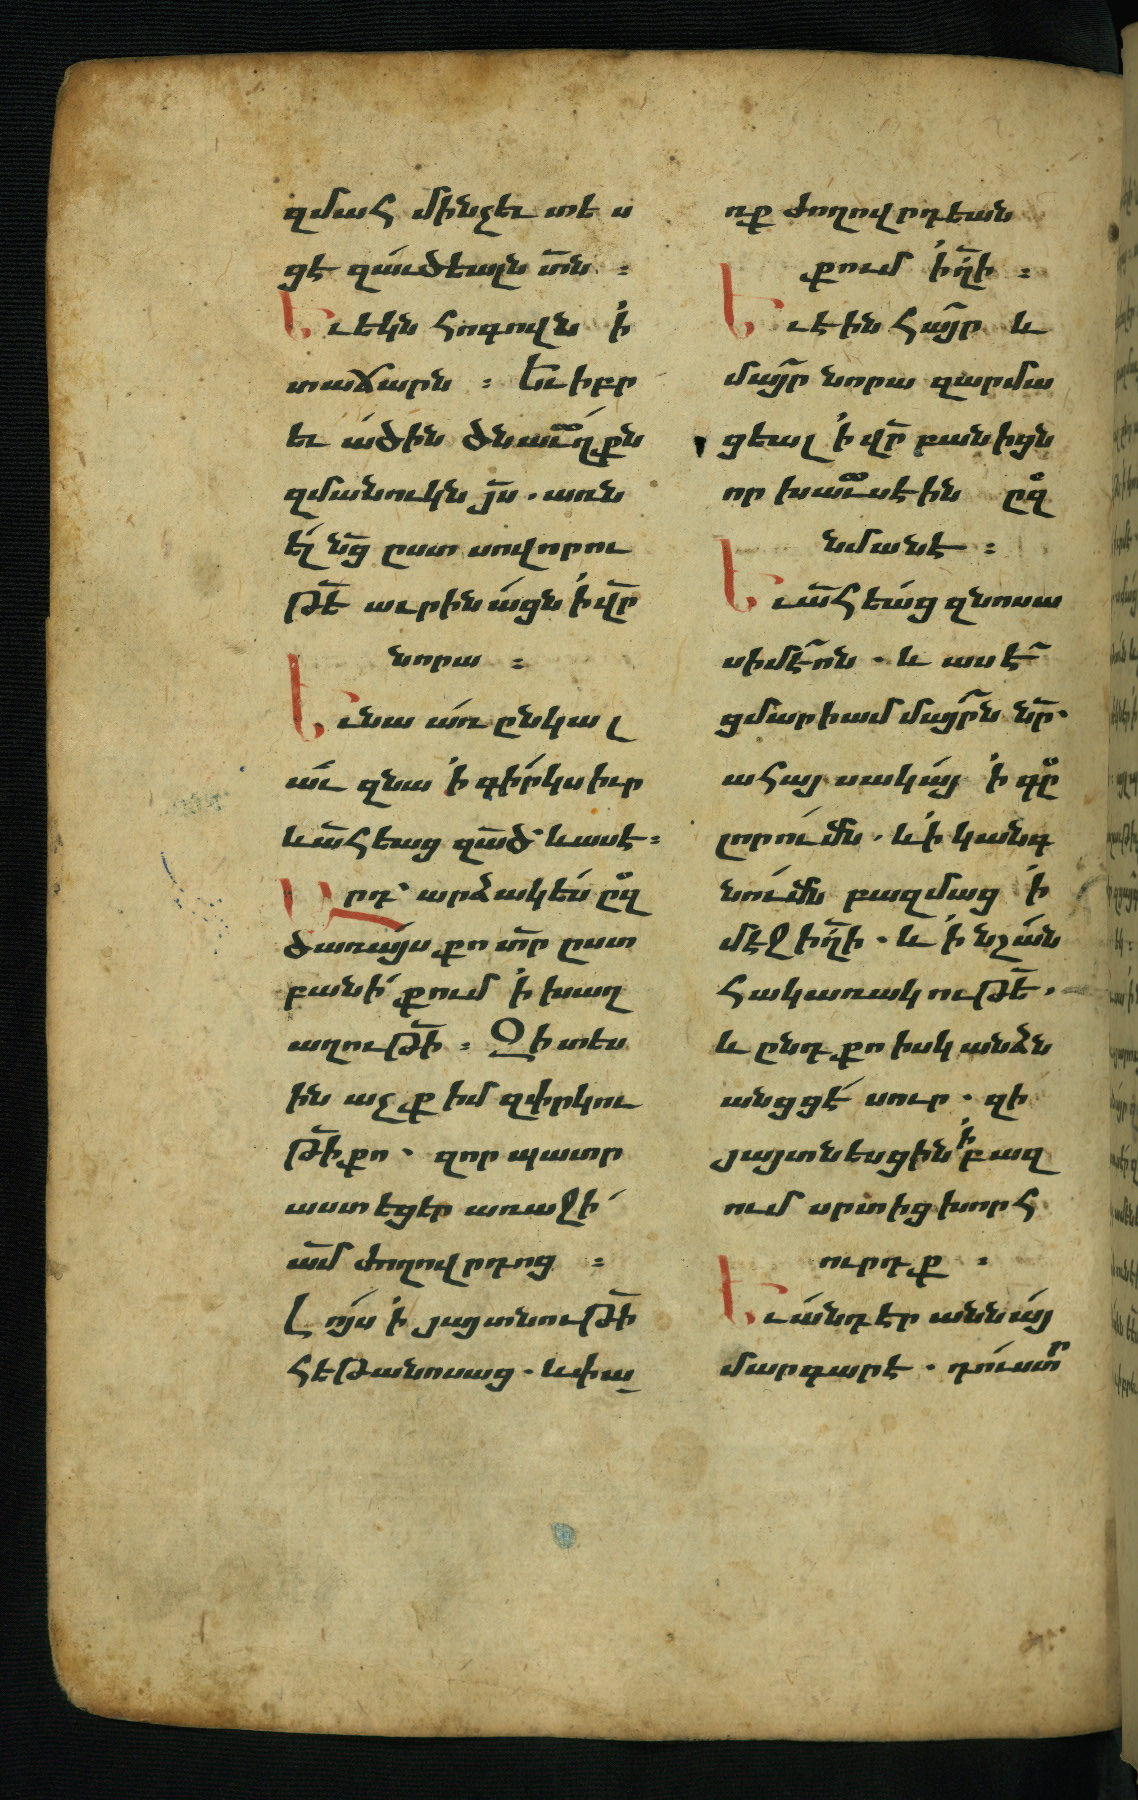 զմահ մինչեւ տե ս
ցէ զաւծեալն տ՟ն ։
Եւ եկն հոգովն ի
տաճարն ։ Եւ իբր
եւ ածին ծնաւղքն
զմանուկն յ՟ս . առն
ել նց՟ ըստ սովորու
թե՟ աւրինացն ի վր՟
նորա ։
Եւ նա առ ընկալ
աւ զնա ի գիրկս իւր
և ա՟հեաց զա՟ծ և ասէ ։
Արդ արձակես ըզ
ծառայս քո տ՟ր ըստ
բանի քում ի խաղ
աղութի՟ ։ Զի տես
ին աչք իմ զփրկու
թի՟ քո . զոր պատր
աստ եցեր առաջի
ա՟մ ժողովրդոց ։
Լոյս ի յայտնութի՟
հեթանոսաց . և փա
ռք ժողովրդեան
քում ի՟ղի ։
Եւ էին հայր և
մայր նորա զարմա
ցեալ ի վր՟ բանիցն
որ խաւսէին ըզ
նմանէ ։
Եւ ա՟հեաց զնոսա
սիմէոն . և ասէ
ցմարիամ մայրն նր՟ .
ահայ սակայ ի գլ
որումն . և ի կանգ
նումն բազմաց ի
մէջ ի՟ղի . և ի նշան
հակառակութե՟ .
և ընդ քո իսկ անձն
անցցէ սուր . զի
յայտնեսցին ի բազ
ում սրտից խորհ
ուրդք ։
Եւ անդ էր աննայ
մարգարէ . դուստր